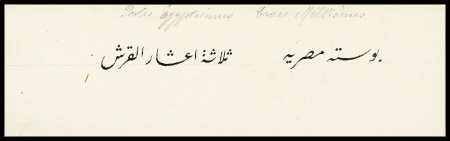 Postes Egyptiennes Trois Millièmes
بوسته مصريه ثلاثة اعشار القرش